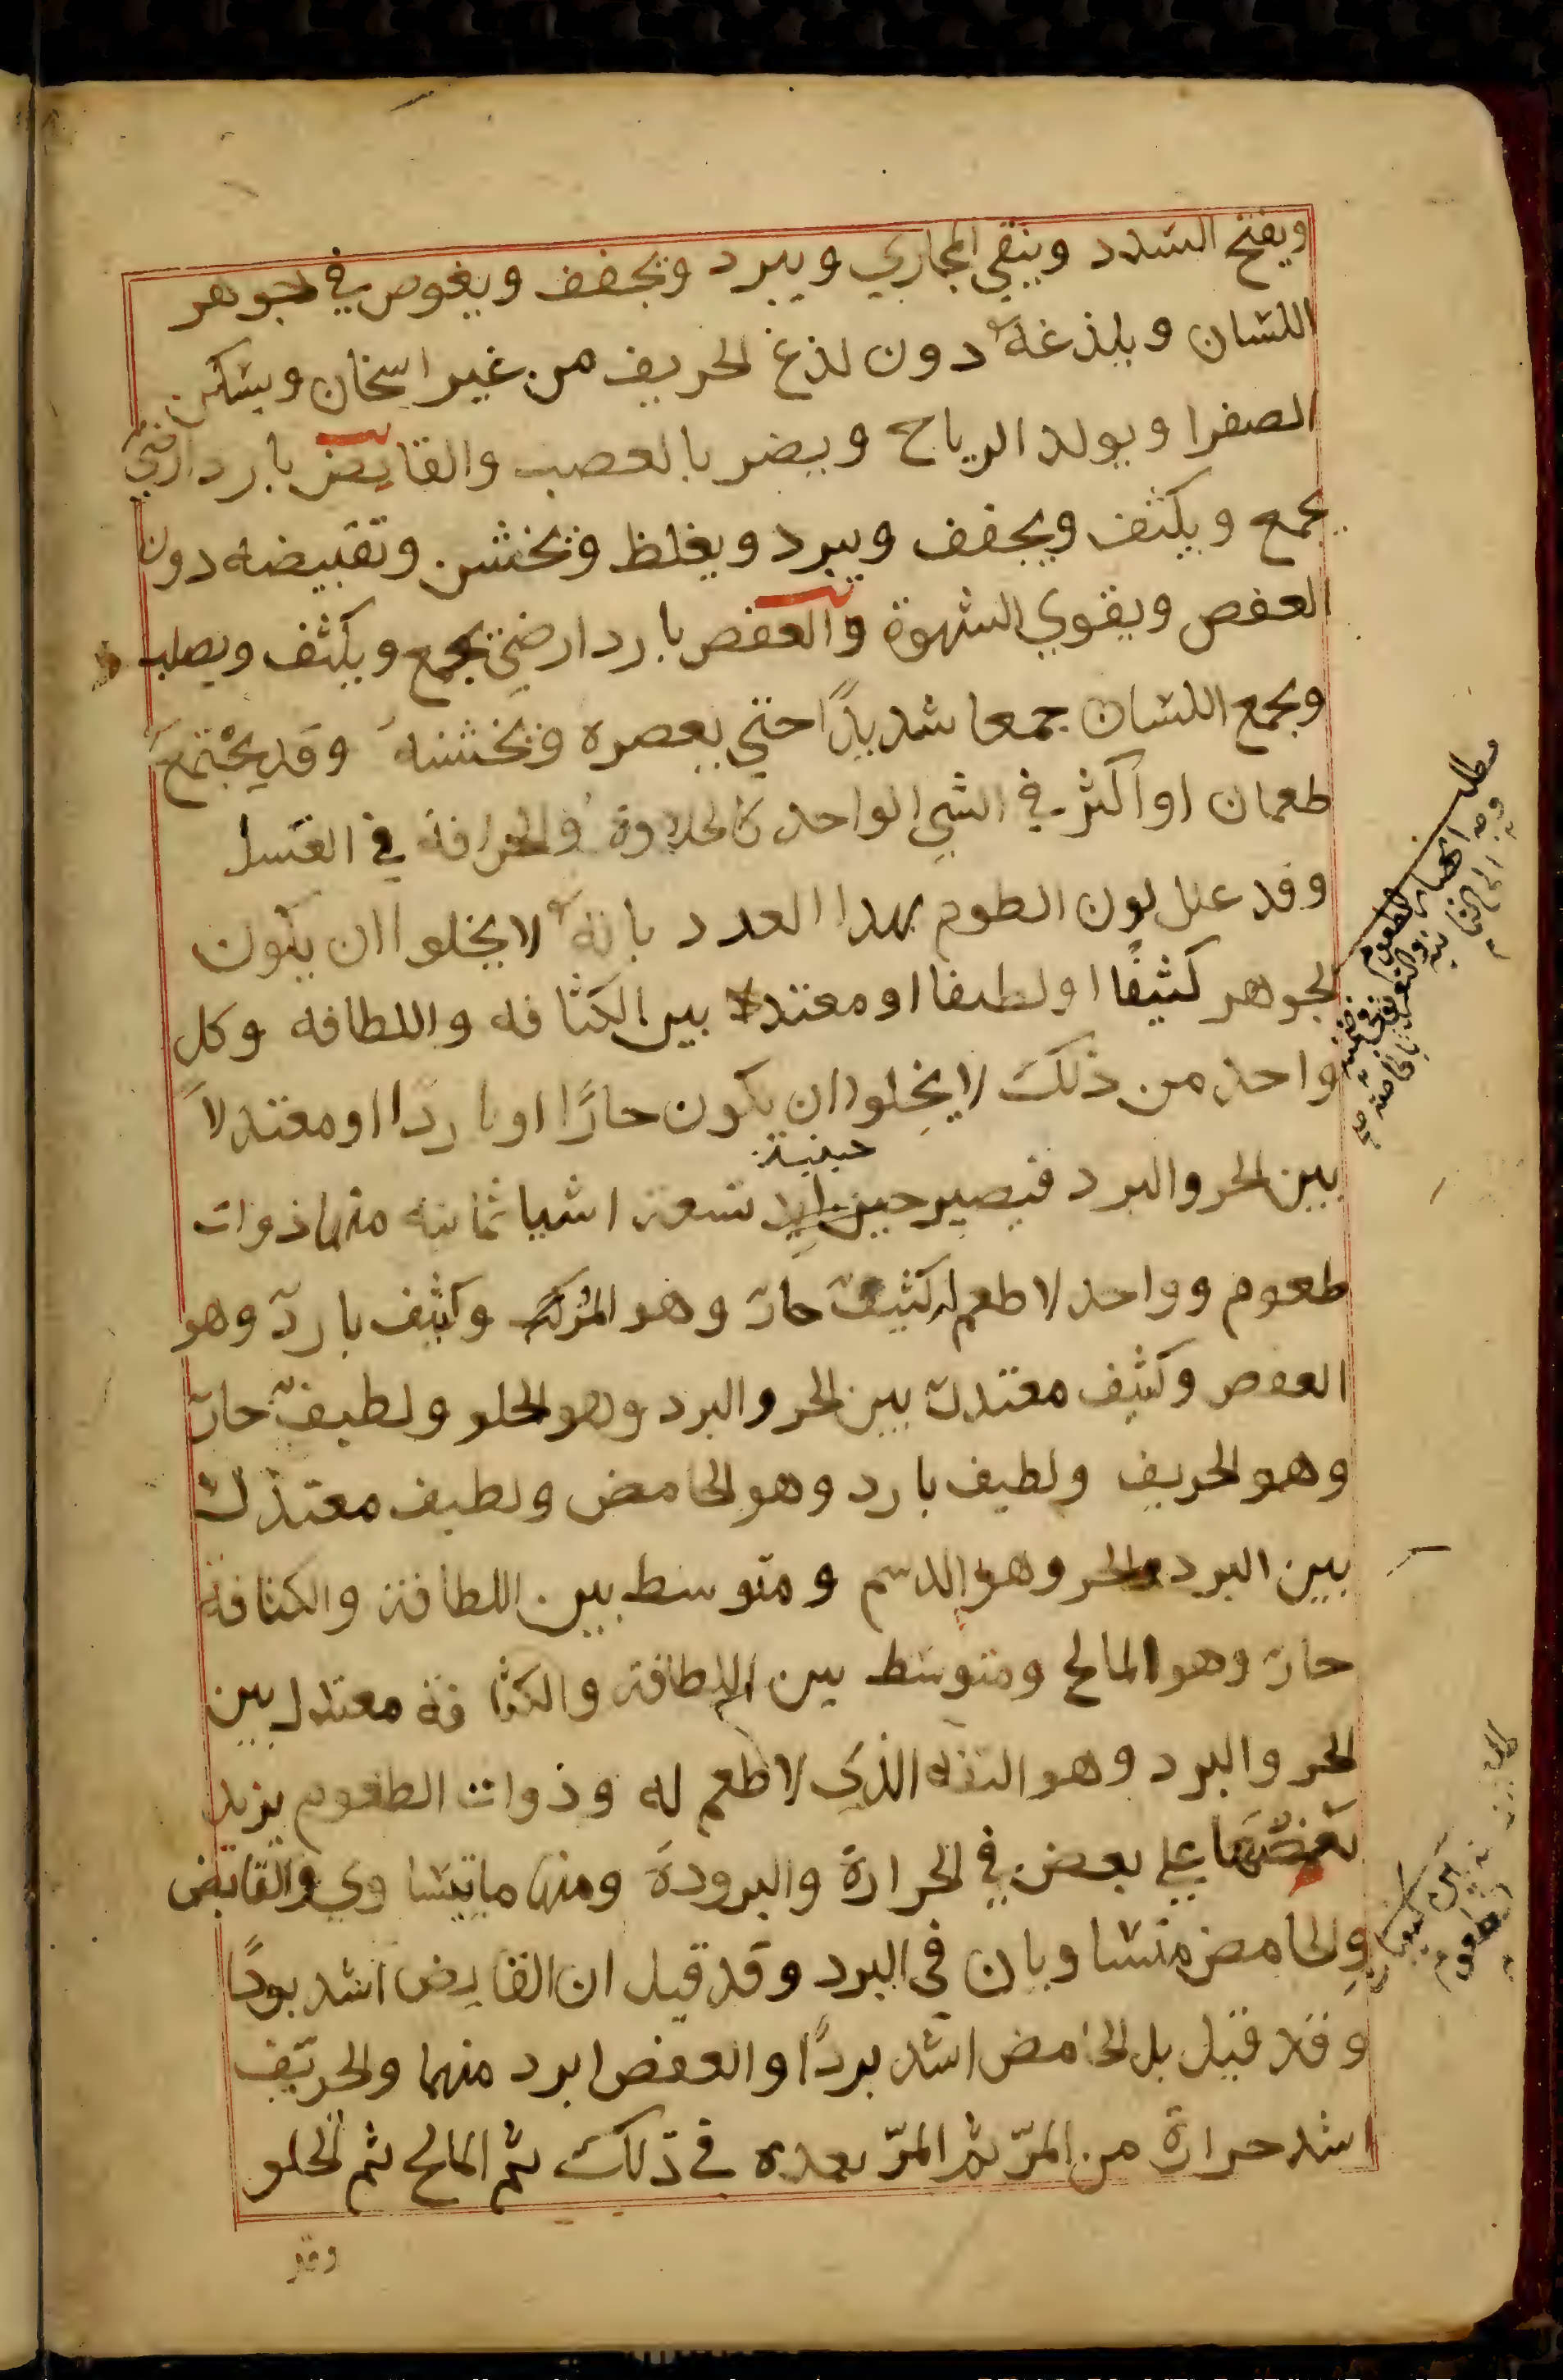 ويفتح السدد وينقي المجاري ويبرد ويجفف ويغوص في جوهر
اللسان ويلذغه دون لذغ الحريف من غير اسخان ويسكن
الصفرا ويولد الرياح ويضر بالعصب والقابض بارد ارضي
يجمع ويكثف ويجفف ويبرد ويغلظ ويخشن وتقبيضه دون
العفص ويقوي الشهوة والعفص بارد ارضي يجمع ويكثف ويصلب
ويجمع اللسان جمعا شديدًا حتي يعصره ويخشنه وقد يجتمع
طعمان او اكثر في الشي الواحد كالحلاوة والحرافة في العسل
وقد علل لون الطوم بهدا العدد بانه لا يخلوا ان يكون
الجوهر كثيفًا او لطيفا او معتدلا بين الكثافه واللطافه وكل
واحد من ذلك لا يخلوا ان يكون حارًا او باردًا او معتدلاً
بين الحر والبرد فيصير حينئذ تسعة اشيا ثمانيه منها ذوات
حينئذ
طعوم وواحد لا طعم له كثيف حار وهو المر وكثيف بارد وهو
العفص وكثيف معتدل بين الحر والبرد وهو الحلو ولطيف حار
وهو الحريف ولطيف بارد وهو الحامض ولطيف معتدل
بين البرد والحر وهو الدسم ومتوسط بين اللطافة والكثافة
حار وهو المالح ومتوسط بين اللطافة والكثافة معتدل بين
الحر والبرد وهو التفه الذي لا طعم له وذوات الطعوم يزيد
بعضها علي بعض في الحرارة والبرودة ومنها ما يتساوي والقابض
والحامض متساويان في البرد وقد قيل ان القابض اشد بردًا
وقد قيل بل الحامض اشد بردًا والعفص ابرد منهما والحريف
اشد حرارة من المرّ ثم المرّ بعده في ذلك ثم المالح ثم الحلو
وقد
مطلب
وجه انحصار الطعوم في